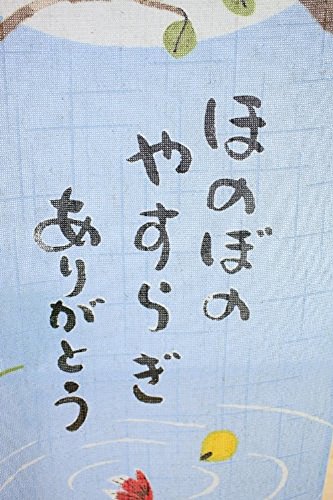 ほのぼの
やすらぎ
ありがとう